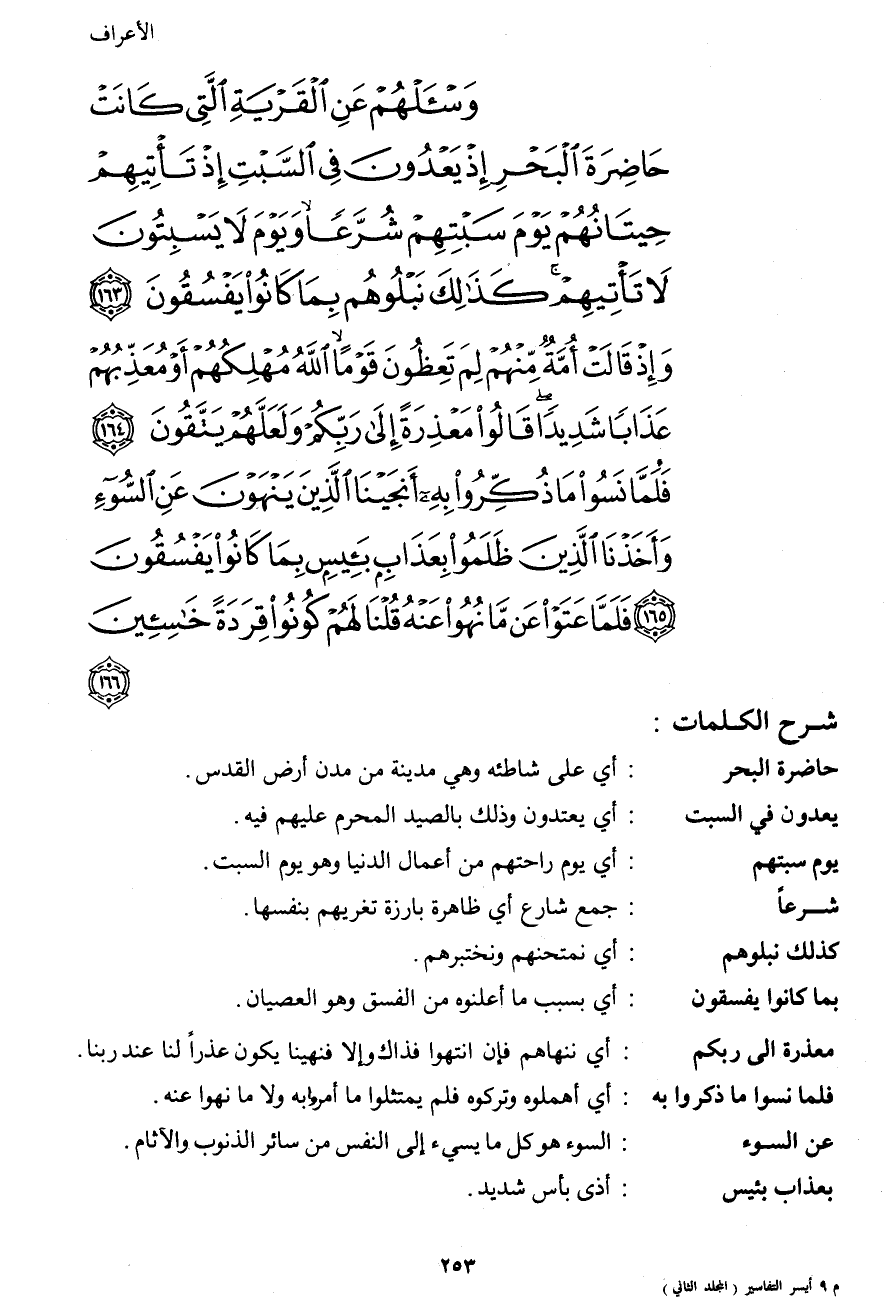 الأعراف
وَسْئَلْهُمْ عَنِ الْقَرْيَةِ الَّتِي كَانَتْ
حَاضِرَةَ الْبَحْرِ إِذْ يَعْدُونَ فِي السَّبْتِ إِذْ تَأْتِيهِمْ
حِيتَانُهُمْ يَوْمَ سَبْتِهِمْ شُرَّعًا وَيَوْمَ لَا يَسْبِتُونَ
لَا تَأْتِيهِمْ ۚ كَذَٰلِكَ نَبْلُوهُم بِمَا كَانُوا يَفْسُقُونَ ١٦٣
وَإِذْ قَالَتْ أُمَّةٌ مِّنْهُمْ لِمَ تَعِظُونَ قَوْمًا ۙ اللَّهُ مُهْلِكُهُمْ أَوْ مُعَذِّبُهُمْ
عَذَابًا شَدِيدًا ۖ قَالُوا مَعْذِرَةً إِلَىٰ رَبِّكُمْ وَلَعَلَّهُمْ يَتَّقُونَ ١٦٤
فَلَمَّا نَسُوا مَا ذُكِّرُوا بِهِ أَنجَيْنَا الَّذِينَ يَنْهَوْنَ عَنِ السُّوءِ
وَأَخَذْنَا الَّذِينَ ظَلَمُوا بِعَذَابٍ بَئِيسٍ بِمَا كَانُوا يَفْسُقُونَ
١٦٥ فَلَمَّا عَتَوْا عَن مَّا نُهُوا عَنْهُ قُلْنَا لَهُمْ كُونُوا قِرَدَةً خَاسِئِينَ
١٦٦
شرح الكلمات :
حاضرة البحر : أي على شاطئه وهي مدينة من مدن أرض القدس .
يعدون في السبت : أي يعتدون وذلك بالصيد المحرم عليهم فيه .
يوم سبتهم : أي يوم راحتهم من أعمال الدنيا وهو يوم السبت .
شرعاً : جمع شارع أي ظاهرة بارزة تغريهم بنفسها .
كذلك نبلوهم : أي نمتحنهم ونختبرهم .
بما كانوا يفسقون : أي بسبب ما أعلنوه من الفسق وهو العصيان .
معذرة الى ربكم : أي ننهاهم فإن انتهوا فذاك وإلا فنهينا يكون عذراً لنا عند ربنا .
فلما نسوا ما ذكروا به : أي أهملوه وتركوه فلم يمتثلوا ما أمروابه ولا ما نهوا عنه .
عن السوء : السوء هو كل ما يسيء إلى النفس من سائر الذنوب والآثام .
بعذاب بئيس : أذى بأس شديد .
٢٥٣
م ٩ أيسر التفاسير ( المجلد الثاني )